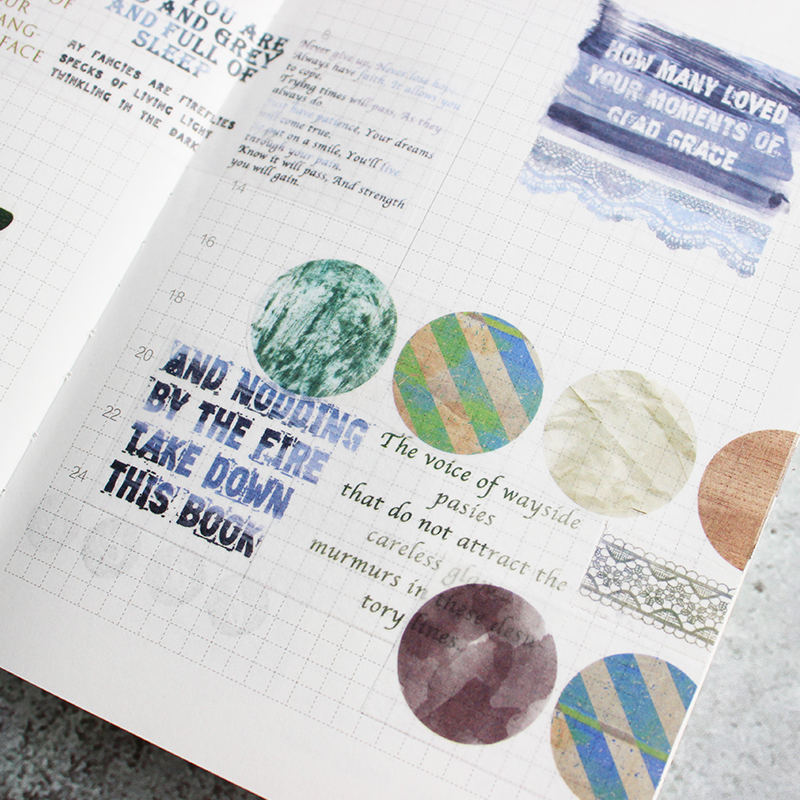 OF
OUR
ANG-
FACE
YOU ARE
AND GREY
AND FULL OF
SLEEP
MY FANCIES ARE FIREFLIES
SPECKS OF LIVING LIGHT
TWINKLING IN THE DARK
8
Never give up, Never lose
Always have faith. It allows you
to cope.
Trying times will pass, As they
always do.
Just have patience, Your dreams
will come true.
put on a smile, You'll live
through your pain.
Know it will pass, And strength
you will gain.
HOW MANY LOVED
YOUR MOMENTS OF
GLAD GRACE
14
16
18
20
22
24
AND NODDING
BY THE FIRE
TAKE DOWN
THIS BOOK
The voice of wayside
pasies
that do not attract the
careless
murmurs in these desu-
tory lines.